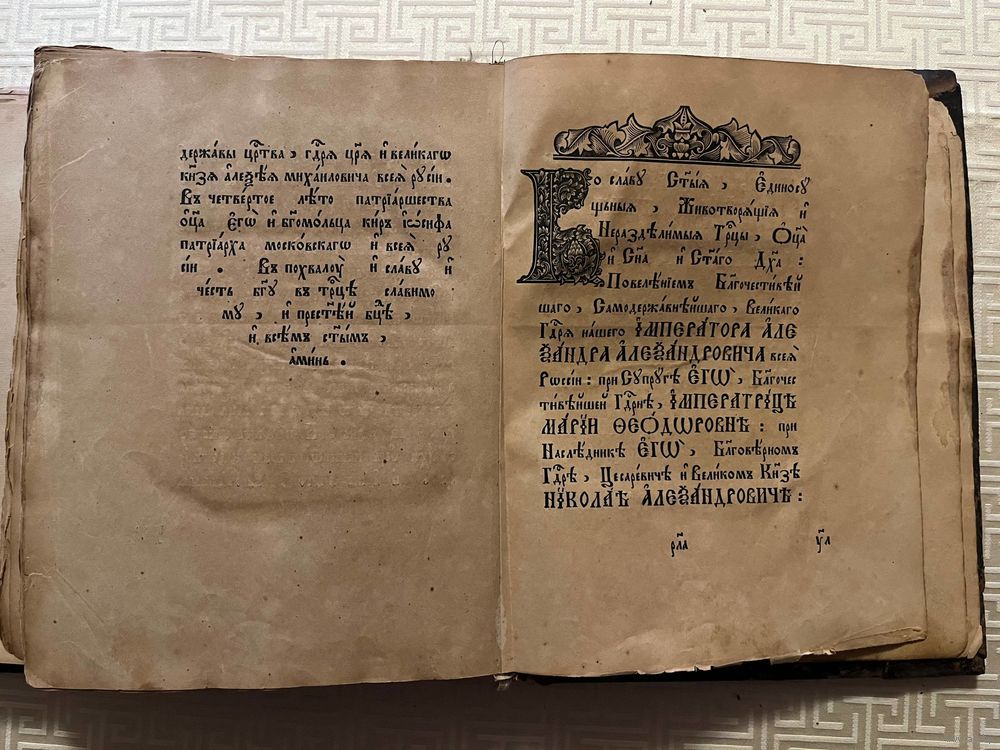 держа́вы црⷭ҇тва , гдⷭ҇рѧ црѧ̀ и҆ вели́кагѡ
кнѧ́зѧ а҆леѯѣ́ѧ миха́иловича всеѧ̀ рꙋсі́и .
Въ четве́ртое лѣ́то патрїа́ршества
ѻ҆ц҃а̀ є҆гѡ̀ и҆ бг҃омо́льца кѵ́ръ і҆ѡ́сифа
патрїа́рха моско́вскагѡ и҆ всеѧ̀ рꙋ
сі́и . Въ похвалꙋ̀ и҆ сла́вꙋ и҆
че́сть бг҃ꙋ въ трⷪ҇цѣ сла́вимо
мꙋ , и҆ прест҃ѣ́й бц҃ѣ ,
и҆ всѣ̑м ст҃ы̑мъ ,
а҆ми́нь .
Во сла́вꙋ Ст҃ы́ѧ , Єдиносꙋ́
щныѧ , Животворѧ́щїѧ и҆
Нераздѣли́мыѧ Трⷪ҇цы , Ѻ҆ц҃а̀
и҆ Сн҃а и҆ Ст҃а́го Дх҃а :
Повелѣ́нїемъ Бл҃гочести́вѣй
шаго , Самодержа́внѣйшаго , Вели́каго
Гдⷭ҇рѧ на́шего И҆МПЕРА́ТОРА А҆ЛЕ
ѮА́НДРА А҆ЛЕѮА́НДРОВИЧА всеѧ̀
Рѡссі́и : при Сꙋпрꙋ́гѣ Є҆ГѠ̀ , Бл҃гочес
ти́вѣйшей Гдⷭ҇рнѣ , И҆МПЕРАТРИ́ЦѢ
МАРІ́И ѲЕО́ДѠРОВНѢ : при
Наслѣ́дникѣ Є҆ГѠ̀ , Бл҃говѣ́рномъ
Гдⷭ҇рѣ , Цесаре́вичѣ и҆ Вели́комъ Кнѧ́зѣ
НИКОЛА́Ѣ А҆ЛЕѮА́НДРОВИЧѢ :
рл҃а ᲂу҆л